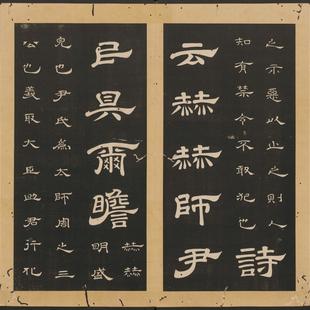 之示惡以止之則人
知有禁令不敢犯也
詩
云赫赫師尹
民具爾瞻
赫赫
明盛
皃也尹氏為太師周之三
公也義取大臣助君行化